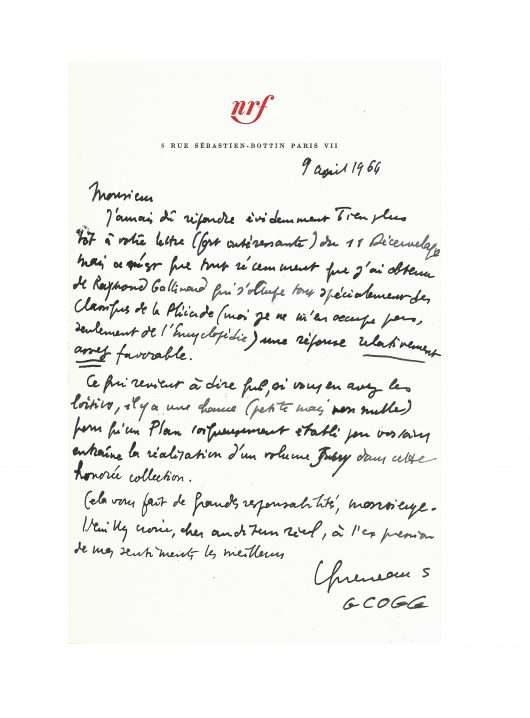 nrf
5 RUE SÉBASTIEN-BOTTIN PARIS VII
9 april 1964
Monsieur
J'aurais dû répondre évidemment bien plus
tôt à votre lettre (fort intéressante) du 18 Décervelage
mais ce n'est que tout récemment que j'ai obtenu
de Raymond Gallimard qui s'occupe tout spécialement des
Classiques de la Pléiade (moi je ne m'en occupe pas,
seulement de l'Encyclopédie) une réponse relativement
assez favorable.
Ce qui revient à dire que, si vous en avez les
loisirs, il y a une chance (petite mais non nulle)
pour qu'un Plan soigneusement établi par vos soins
entraîne la réalisation d'un volume Jarry dans cette
honorée collection.
Cela vous fait de grandes responsabilités,
Veuillez croire, cher auditeur réel, à l'expression
de mes sentiments les meilleurs
Queneau S
G C O G G